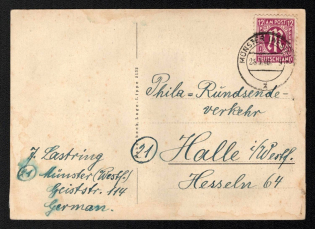 12 AM POST 12
M
DEUTSCHLAND
MÜNSTER
Phila = Rundsende-
verkehr
21
Halle i/Westf.
Hesseln 64
J. Lastring
21 Münster (Westf)
Geiststr. 114
German.